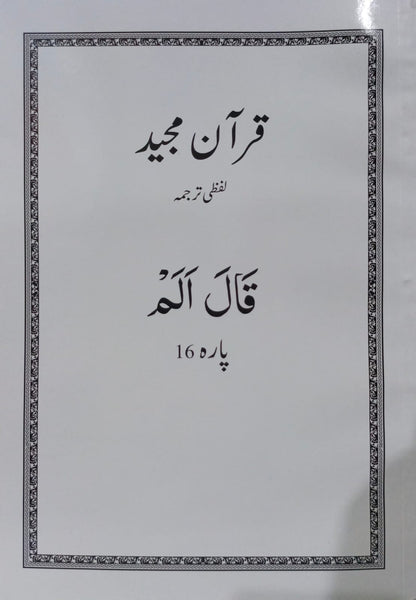 قرآن مجید
لفظی ترجمہ
قَالَ اَلَمْ
پارہ 16